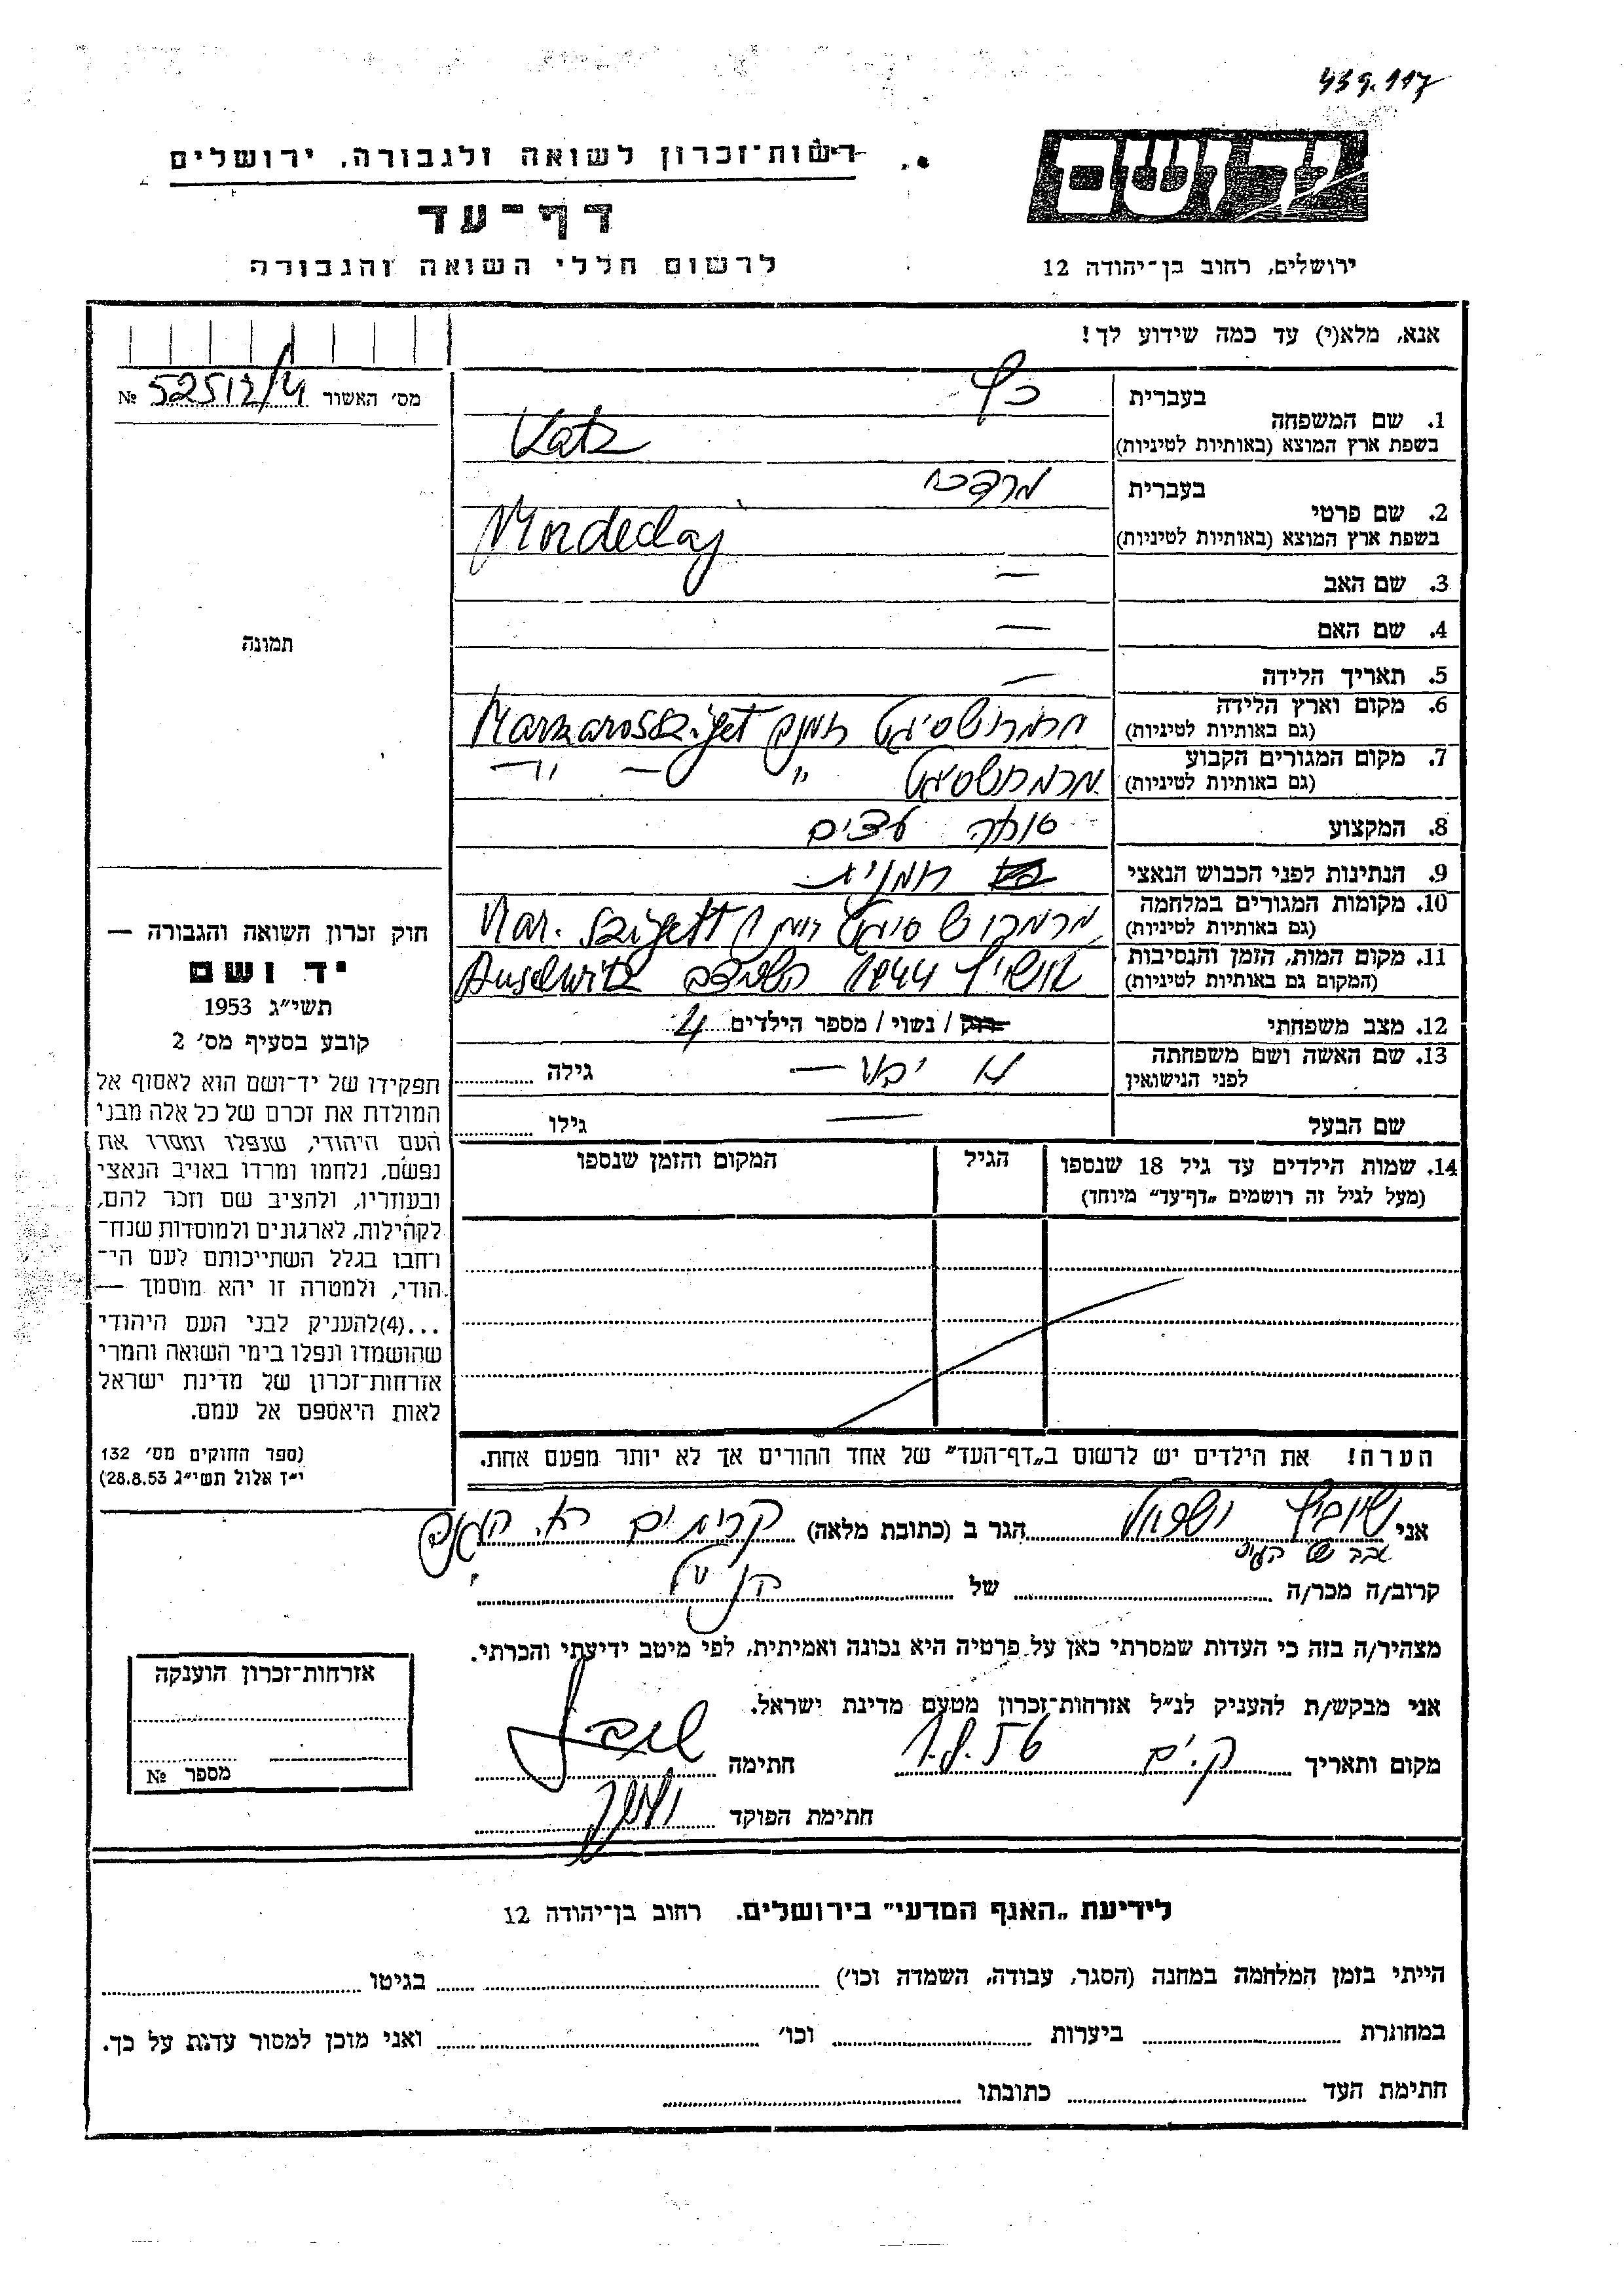 439.117
רשות־זכרון לשואה ולגבורה, ירושלים
דף־עד
לרשום חללי השואה והגבורה
יד ושם
ירושלים, רחוב בן־יהודה 12
אנא, מלא(י) עד כמה שידוע לך!
מס' האשור № 52512/4
תמונה
1. שם המשפחה
בעברית כץ
בשפת ארץ המוצא (באותיות לטיניות) Katz
2. שם פרטי
בעברית מרדכי
בשפת ארץ המוצא (באותיות לטיניות) Mordechaj
3. שם האב —
4. שם האם —
5. תאריך הלידה —
6. מקום וארץ הלידה
(גם באותיות לטיניות) מרמרושסיגט Marmarossziget
7. מקום המגורים הקבוע
(גם באותיות לטיניות) מרמרושסיגט " — " —
8. המקצוע סוחר עצים
9. הנתינות לפני הכבוש הנאצי רומנית
10. מקומות המגורים במלחמה
(גם באותיות לטיניות) מרמרוש סיגט Mar. Szigett
11. מקום המות, הזמן והנסיבות
(המקום גם באותיות לטיניות) אושויץ 1944 Auschwitz
12. מצב משפחתי רווק / נשוי / מספר הילדים 4
13. שם האשה ושם משפחתה
לפני הנישואין לא ידוע — גילה
שם הבעל — גילו
14. שמות הילדים עד גיל 18 שנספו
(מעל לגיל זה רושמים „דף־עד" מיוחד)
הגיל
המקום והזמן שנספו
הערה! את הילדים יש לרשום ב„דף־העד" של אחד ההורים אך לא יותר מפעם אחת.
חוק זכרון השואה והגבורה —
יד ושם
תשי"ג 1953
קובע בסעיף מס' 2
תפקידו של יד־ושם הוא לאסוף אל
המולדת את זכרם של כל אלה מבני
העם היהודי, שנפלו ומסרו את
נפשם, נלחמו ומרדו באויב הנאצי
ובעוזריו, ולהציב שם וזכר להם,
לקהילות, לארגונים ולמוסדות שנח־
רחבו בגלל השתייכותם לעם הי־
הודי, ולמטרה זו יהא מוסמך —
...(4) להעניק לבני העם היהודי
שהושמדו ונפלו בימי השואה והמרי
אזרחות־זכרון של מדינת ישראל
לאות היאספם אל עמם.
(ספר החוקים מס' 132
י"ז אלול תשי"ג 28.8.53)
אני הגר ב (כתובת מלאה) קרית ים
קרוב/ה מכר/ה של
מצהיר/ה בזה כי העדות שמסרתי כאן על פרטיה היא נכונה ואמיתית, לפי מיטב ידיעתי והכרתי.
אני מבקש/ת להעניק לנ"ל אזרחות־זכרון מטעם מדינת ישראל.
מקום ותאריך ק. ים 1.8.56 חתימה
חתימת הפוקד
אזרחות־זכרון הוענקה
מספר №
לידיעת „האגף המדעי" בירושלים. רחוב בן־יהודה 12
הייתי בזמן המלחמה במחנה (הסגר, עבודה, השמדה וכו') בגיטו
במחתרת ביערות וכו' ואני מוכן למסור עדות על כך.
חתימת העד כתובתו